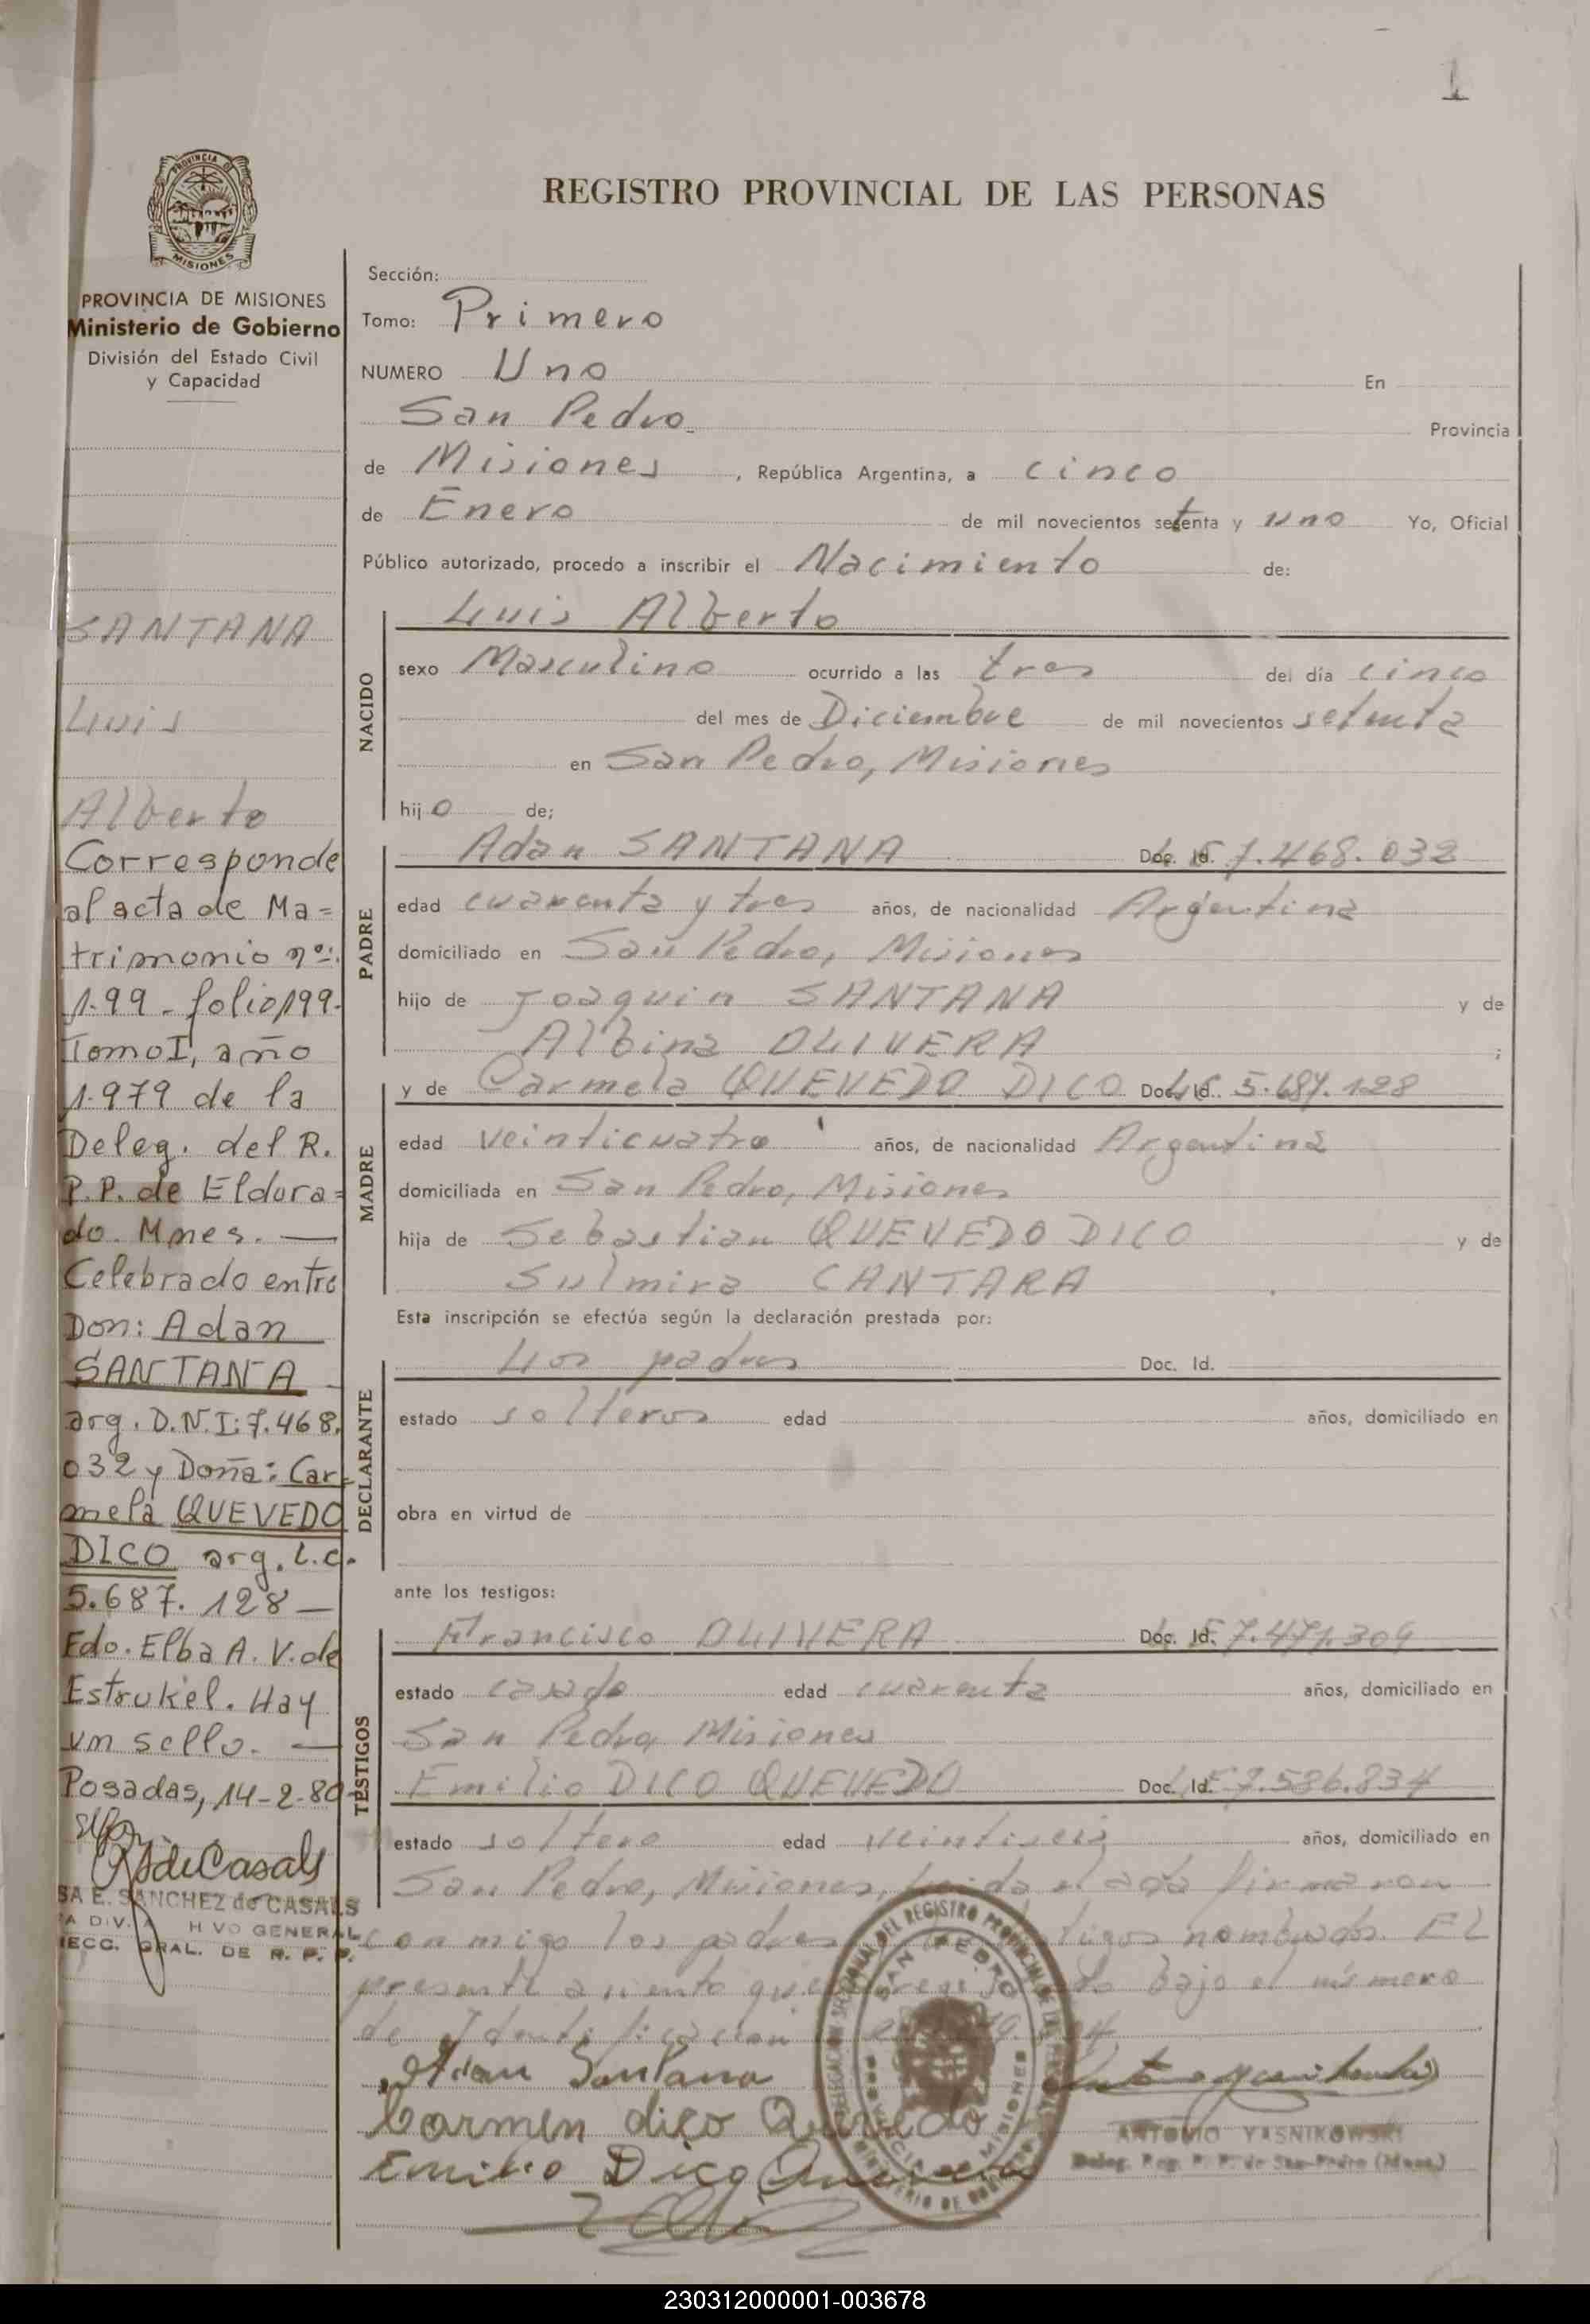 1
REGISTRO PROVINCIAL DE LAS PERSONAS
PROVINCIA DE MISIONES
Ministerio de Gobierno
División del Estado Civil
y Capacidad
SANTANA
Luis
Alberto
Corresponde
al acta de Ma=
trimonio nº:
1.99 - folio 199-
Tomo I, año
1.979 de la
Deleg. del R.
P.P. de Eldora=
do. Mnes. —
Celebrado entre
Don: Adan
SANTANA
arg. D.N.I: 7.468.
032 y Doña: Car=
mela QUEVEDO
DICO arg. L.C.
5.687.128 —
Fdo. Elba A. V. de
Estrukel. Hay
un sello. —
Posadas, 14-2-80-
SA E. SANCHEZ de CASALS
GENERAL
GRAL. DE R. P. P.
Sección:
Tomo: Primero
NUMERO Uno En
San Pedro Provincia
de Misiones, República Argentina, a cinco
de Enero de mil novecientos setenta y uno Yo, Oficial
Público autorizado, procedo a inscribir el Nacimiento de:
NACIDO
Luis Alberto
sexo Masculino ocurrido a las tres del día cinco
del mes de Diciembre de mil novecientos setenta
en San Pedro, Misiones
hijo de;
PADRE
Adan SANTANA Doc. Id. 7.468.032
edad cuarenta y tres años, de nacionalidad Argentina
domiciliado en San Pedro, Misiones
hijo de Joaquin SANTANA y de
Albina OLIVERA ;
MADRE
y de Carmela QUEVEDO DICO Doc. Id. 5.687.128
edad veinticuatro años, de nacionalidad Argentina
domiciliada en San Pedro, Misiones
hija de Sebastian QUEVEDO DICO y de
Sulmira CANTARA
Esta inscripción se efectúa según la declaración prestada por:
DECLARANTE
Los padres Doc. Id.
estado solteros edad años, domiciliado en
obra en virtud de
ante los testigos:
TESTIGOS
Francisco OLIVERA Doc. Id. 7.471.309
estado casado edad cuarenta años, domiciliado en
San Pedro Misiones
Emilio DICO QUEVEDO Doc. Id. 7.586.834
estado soltero edad veintiseis años, domiciliado en
San Pedro, Misiones, Leida el acta firmaron
conmigo los padres testigos nombrados. EL
presente asiento queda bajo el número
de Identificacion
Adan Santana
Carmen dico Quevedo
Emilio Dico Quevedo
SAN PEDRO
ANTONIO YASNIKOWSKI
Deleg. Reg. P. P. de San Pedro (Mnes.)
230312000001-003678